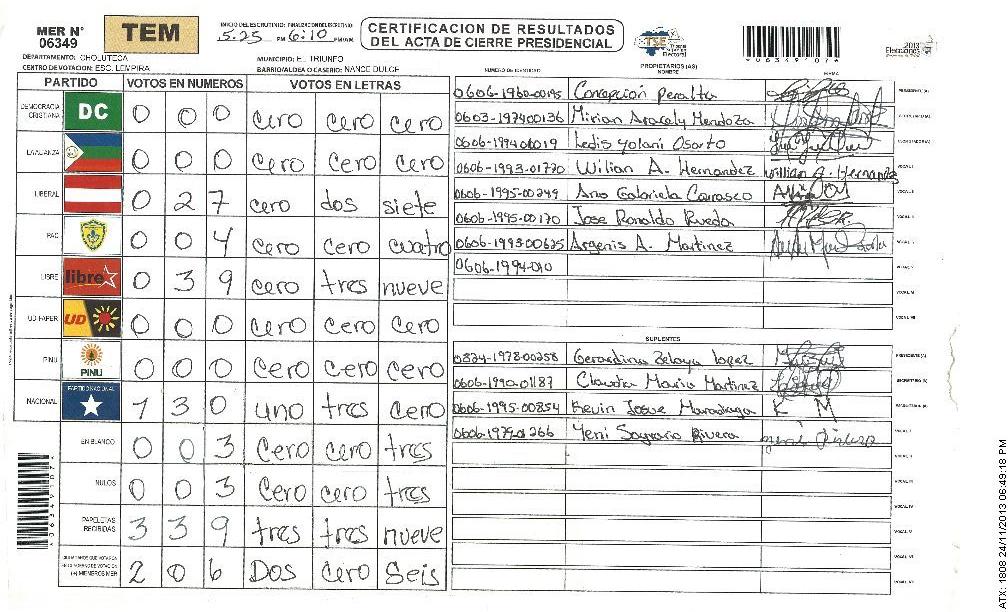 MER N° 06349
TEM
INICIO DEL ESCRUTINIO: FINALIZACION DEL ESCRUTINIO
5:25 PM 6:10 PM/AM
CERTIFICACION DE RESULTADOS DEL ACTA DE CIERRE PRESIDENCIAL
TSE
* 0 6 3 4 9 1 0 7 *
2013
DEPARTAMENTO: CHOLUTECA
MUNICIPIO: EL TRIUNFO
CENTRO DE VOTACION: ESC. LEMPIRA
BARRIO/ALDEA O CASERIO: NANCE DULCE
PROPIETARIOS (AS)
NUMERO DE IDENTIDAD NOMBRE FIRMA
PARTIDO VOTOS EN NUMEROS VOTOS EN LETRAS
DEMOCRACIA CRISTIANA DC 0 0 0 cero cero cero
LA ALIANZA 0 0 0 cero cero cero
LIBERAL 0 2 7 cero dos siete
PAC 0 0 4 cero cero cuatro
LIBRE libre 0 3 9 cero tres nueve
UD FAPER UD 0 0 0 cero cero cero
PINU PINU 0 0 0 cero cero cero
NACIONAL PARTIDO NACIONAL 1 3 0 uno tres cero
EN BLANCO 0 0 3 cero cero tres
NULOS 0 0 3 cero cero tres
PAPELETAS RECIBIDAS 3 3 9 tres tres nueve
CIUDADANOS QUE VOTARON EN CUADERNO DE VOTACION (+) MIEMBROS MER 2 0 6 DOS cero Seis
0606-1960-00195 Concepcion Peralta PRESIDENTE(A)
0603-1979-00136 Mirian Aracely Mendoza SECRETARIO(A)
0606-1994-00019 Ledis yolani Osorto ESCRUTADOR(A)
0606-1993-01770 Wilian A. Hernandez Willian A. Hernandez VOCAL I
0606-1995-00249 Ana Gabriela Carrasco VOCAL II
0606-1995-00170 Jose Ronaldo Rueda
0606-1993-00635 Argenis A. Martinez
0606-1994-010 VOCAL V
VOCAL VI
VOCAL VII
SUPLENTES
0824-1978-00258 Gerardina Zelaya lopez PRESIDENTE(A)
0606-1990-01187 Claudia Maria Martinez SECRETARIO(A)
0606-1995-00854 Kevin Josue K M
0606-1979-01266 Yeni Sagrario Rivera VOCAL I
VOCAL II
VOCAL III
VOCAL IV
VOCAL V
VOCAL VI
VOCAL VII
* 0 6 3 4 9 1 0 7 *
ATX: 1808 24/11/2013 06:49:18 PM